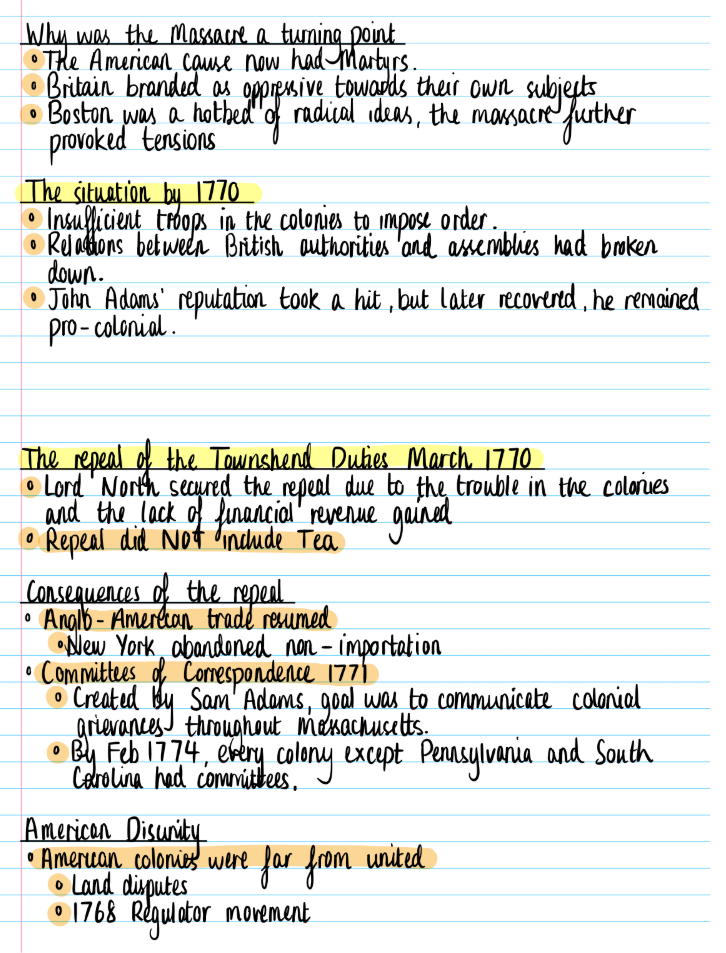 Why was the Massacre a turning point
• The American cause now had Martyrs.
• Britain branded as oppressive towards their own subjects
• Boston was a hotbed of radical ideas, the massacre further
provoked tensions
The situation by 1770
• Insufficient troops in the colonies to impose order.
• Relations between British authorities and assemblies had broken
down.
• John Adams' reputation took a hit, but later recovered, he remained
pro-colonial.
The repeal of the Townshend Duties March 1770
• Lord North secured the repeal due to the trouble in the colonies
and the lack of financial revenue gained
• Repeal did NOT include Tea
Consequences of the repeal
• Anglo-American trade resumed
• New York abandoned non-importation
• Committees of Correspondence 1771
• Created by Sam Adams, goal was to communicate colonial
grievances throughout Massachusetts.
• By Feb 1774, every colony except Pennsylvania and South
Carolina had committees.
American Disunity
• American colonies were far from united
• Land disputes
• 1768 Regulator movement